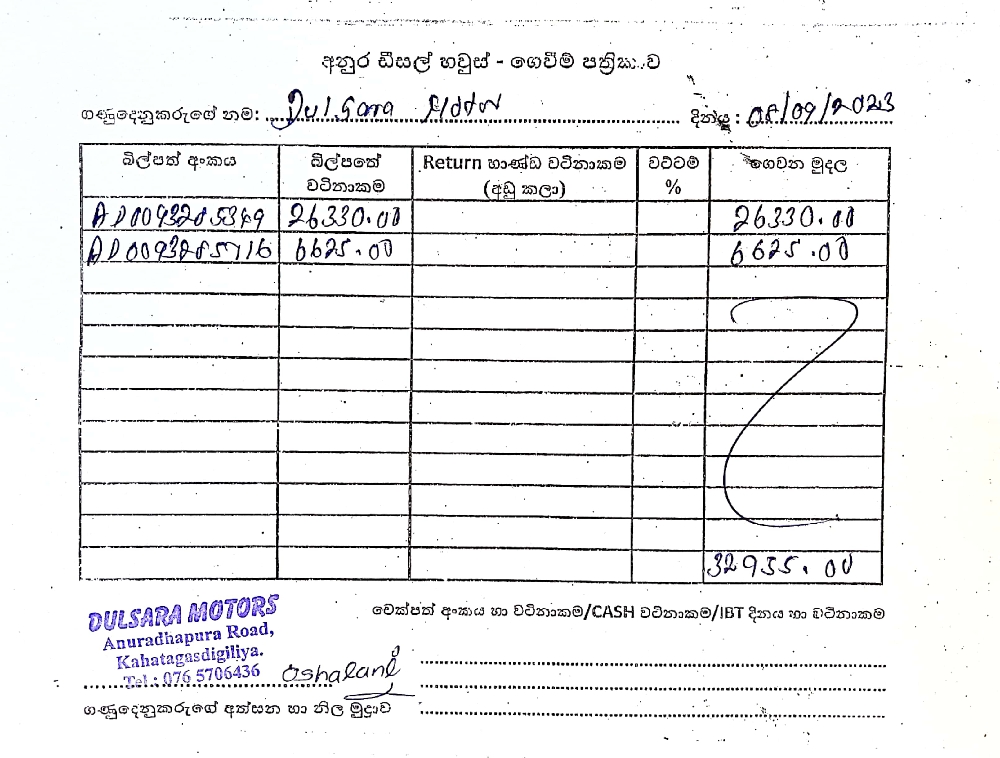 අනුර ඩීසල් හවුස් - ගෙවීම් පත්‍රිකාව
ගණුදෙනුකරුගේ නම: Dulsara Motor දිනය: 08/09/2023
බිල්පත් අංකය බිල්පතේ වටිනාකම Return භාණ්ඩ වටිනාකම (අඩු කලා) වට්ටම් % ගෙවන මුදල
AD0093205369 26330.00 26330.00
AD0093205716 6625.00 6625.00
32955.00
DULSARA MOTORS
Anuradhapura Road,
Kahatagasdigiliya.
Tel : 076 5706436
චෙක්පත් අංකය හා වටිනාකම/CASH වටිනාකම/IBT දිනය හා වටිනාකම
ගණුදෙනුකරුගේ අත්සන හා නිල මුද්‍රාව